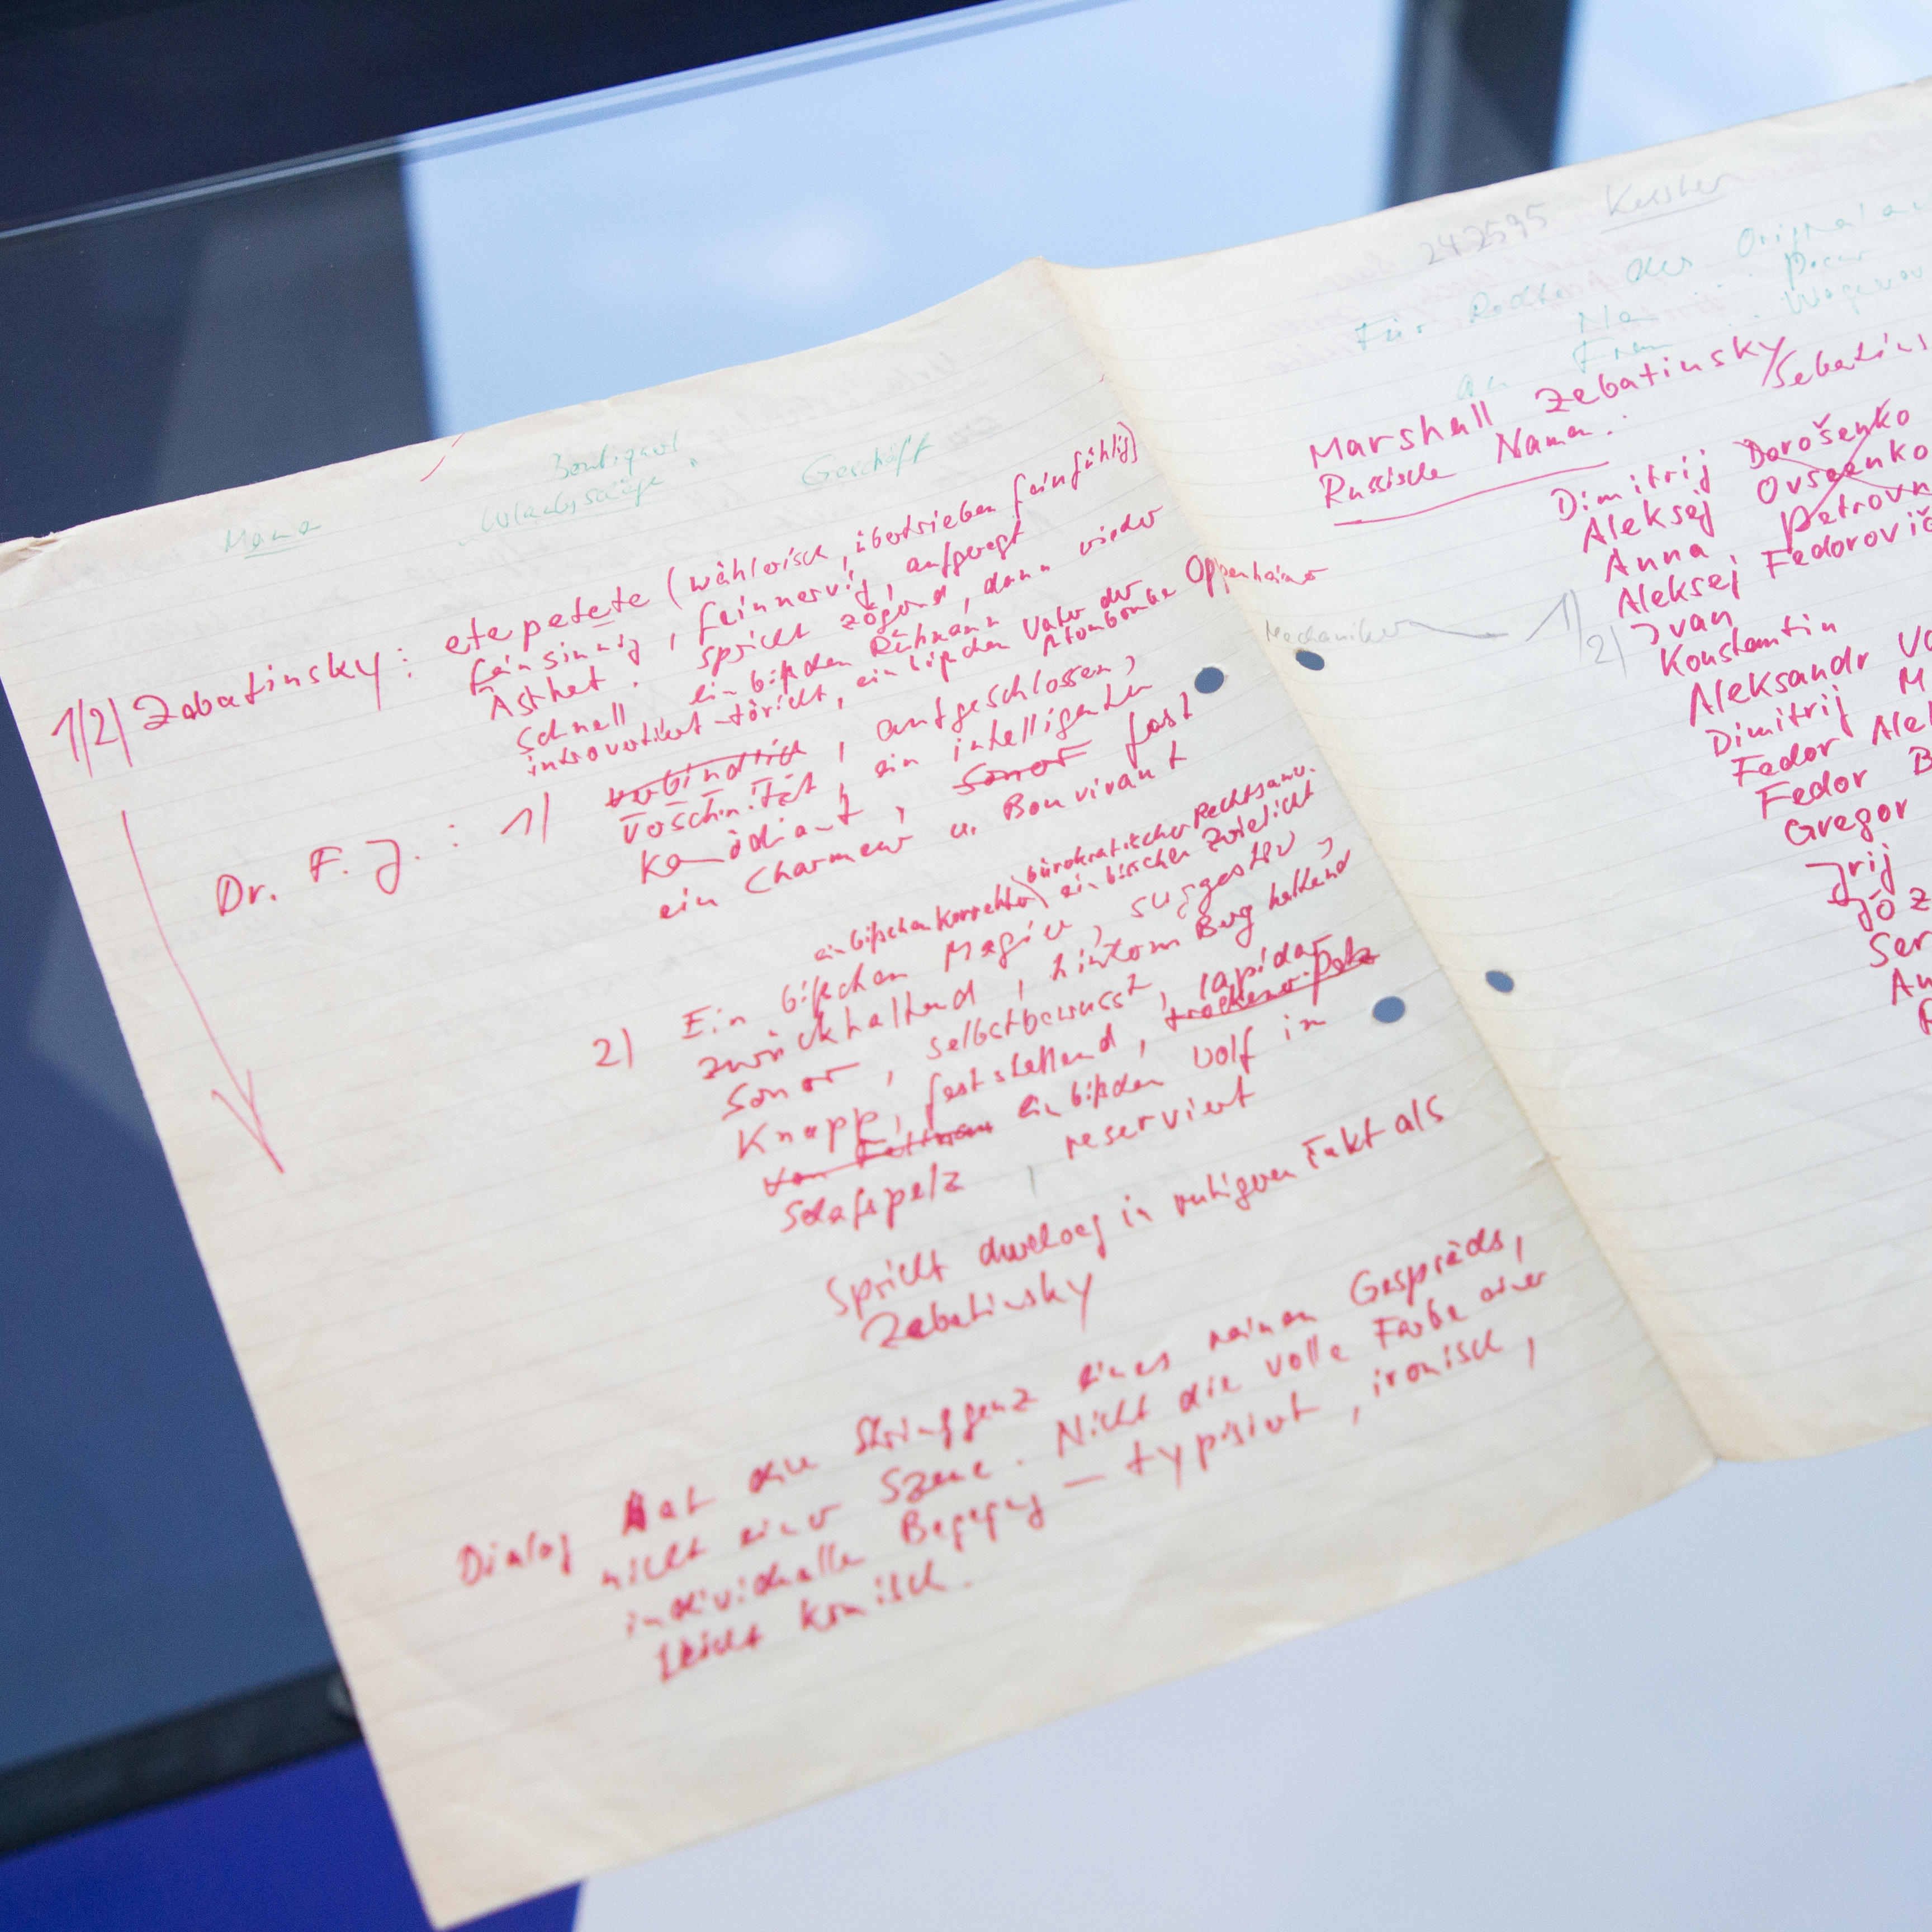 Mama
Geschäft
1/2) Zebatinsky: etepetete (wählerisch, übertrieben feinfühlig)
feinsinnig, feinnervig, aufgeregt
Ästhet. spricht zögernd, dann wieder
schnell ein bißchen Rühmann
introvertiert-töricht, ein bißchen Vater der Atombombe Oppenheimer
Dr. F. J.: 1) verbindlich, aufgeschlossen,
verschmitzt, ein intelligenter
Komödiant, sonor fast
ein Charmeur u. Bonvivant
ein bißchen korrekter bürokratischer Rechtsanw.
ein bisschen Zwielicht
2) Ein bißchen Magier, suggestiv,
zurückhaltend, hinterm Berg haltend
sonor, selbstbewusst, lapidar
Knapp, feststellend, trockener
von ein bißchen Wolf in
Schafspelz, reserviert
Spricht durchweg in ruhigeren Takt als
Zebatinsky
Dialog hat die Stringgenz eines reinen Gesprächs,
nicht einer Szene. Nicht die volle Farbe einer
individuellen Begegng — typisiert, ironisch,
leicht komisch.
242595 Kessler
Für des Original
an Frau
Marshall Zebatinsky/Sebatins
Russische Namen:
Dimitrij Dorošenko
Aleksej Ovseenko
Anna Petrovn
Aleksej Fedorovič
Mechaniker 1) Ivan
2) Konstantin
Aleksandr Vo
Dimitrij M
Fedor Ale
Fedor B
Gregor
Jrij
Józ
Ser
An